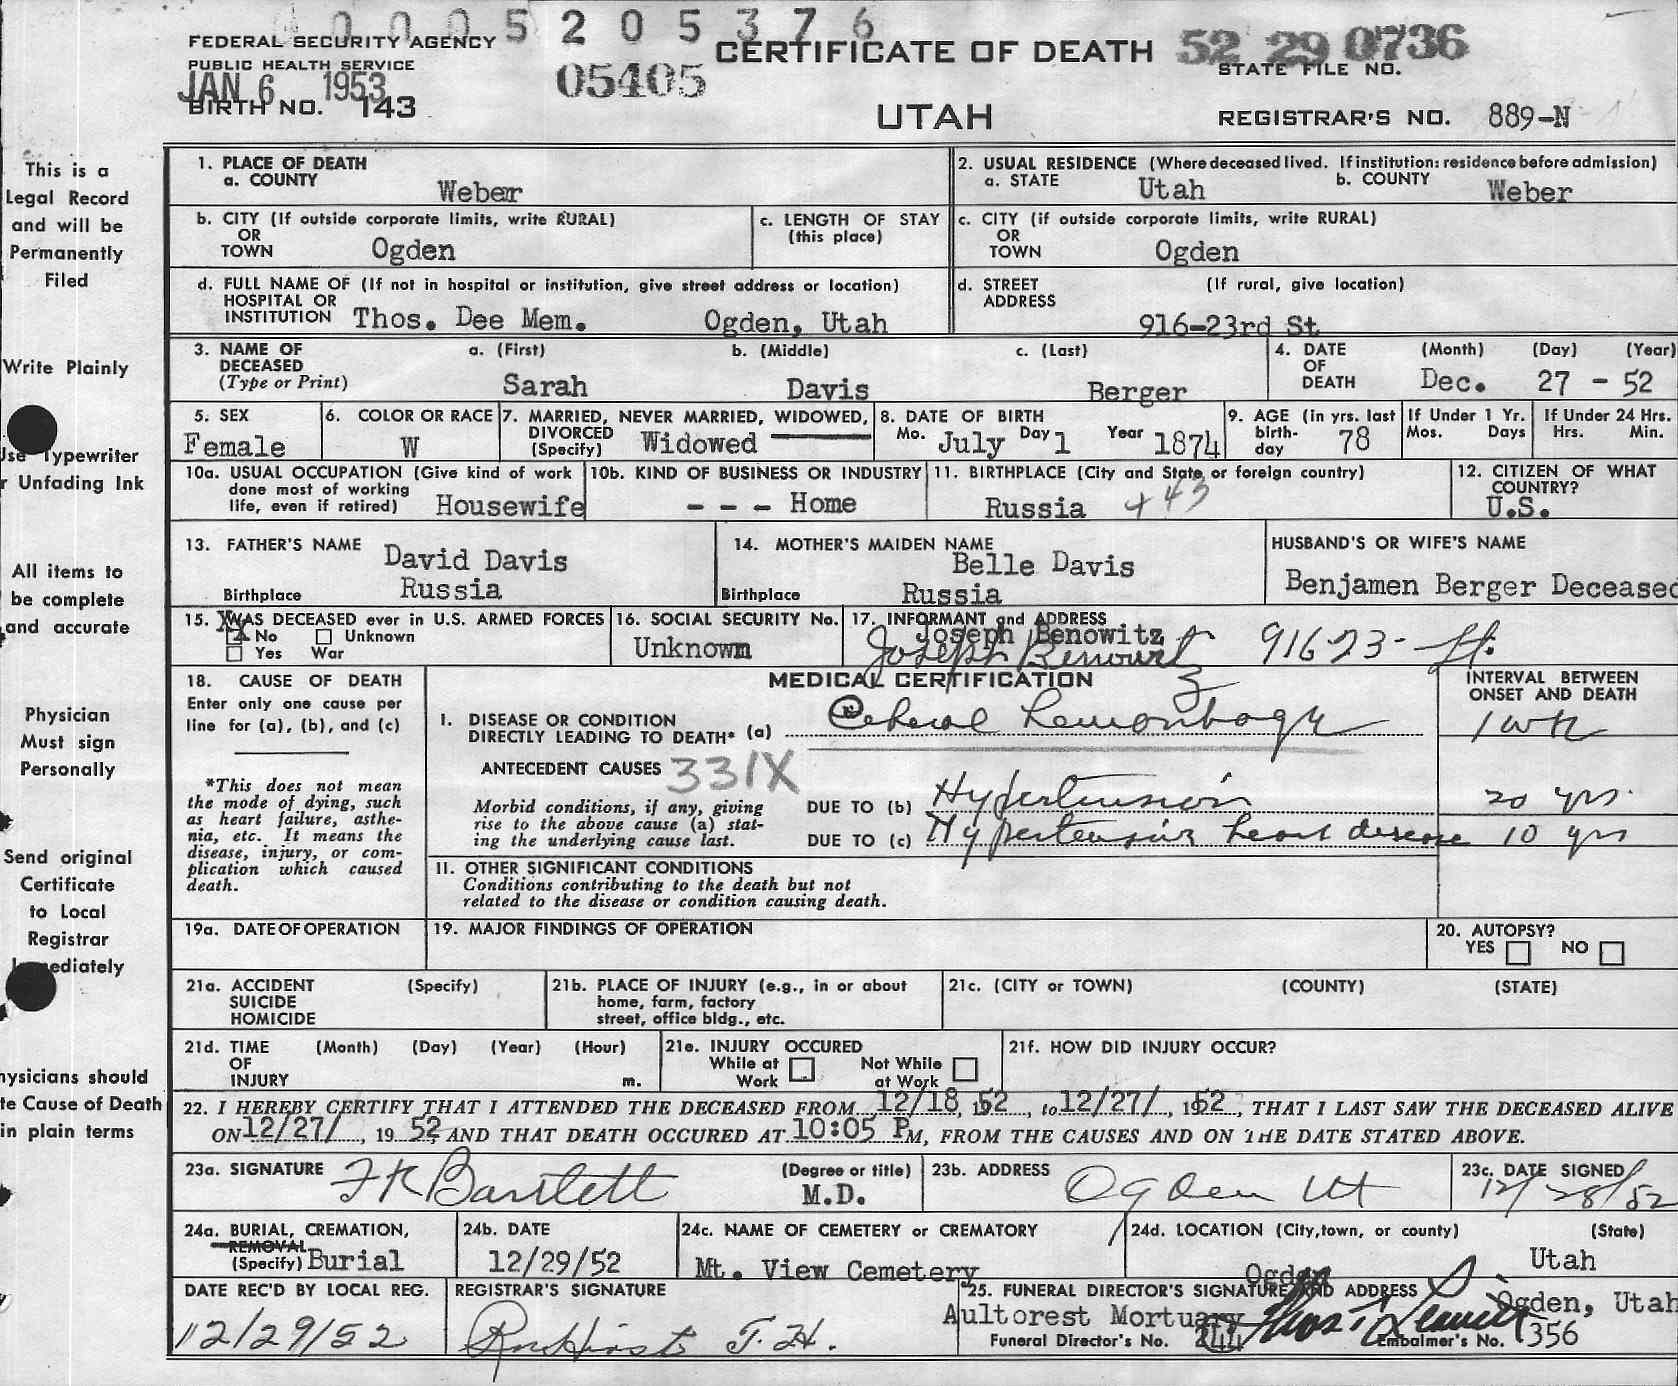 0005205376
FEDERAL SECURITY AGENCY
PUBLIC HEALTH SERVICE
JAN 6 1953
BIRTH NO. 143
05405
CERTIFICATE OF DEATH
UTAH
52 29 0736
STATE FILE NO.
REGISTRAR'S NO. 889-N
This is a
Legal Record
and will be
Permanently
Filed
Write Plainly
Use Typewriter
r Unfading Ink
All items to
be complete
and accurate
Physician
Must sign
Personally
Send original
Certificate
to Local
Registrar
Immediately
hysicians should
te Cause of Death
in plain terms
1. PLACE OF DEATH
a. COUNTY Weber
2. USUAL RESIDENCE (Where deceased lived. If institution: residence before admission)
a. STATE Utah b. COUNTY Weber
b. CITY (If outside corporate limits, write RURAL)
OR
TOWN Ogden
c. LENGTH OF STAY
(this place)
c. CITY (if outside corporate limits, write RURAL)
OR
TOWN Ogden
d. FULL NAME OF (If not in hospital or institution, give street address or location)
HOSPITAL OR
INSTITUTION Thos. Dee Mem. Ogden, Utah
d. STREET (If rural, give location)
ADDRESS
916-23rd St
3. NAME OF DECEASED
(Type or Print)
a. (First) b. (Middle) c. (Last)
Sarah Davis Berger
4. DATE OF DEATH (Month) (Day) (Year)
Dec. 27 - 52
5. SEX
Female
6. COLOR OR RACE
W
7. MARRIED, NEVER MARRIED, WIDOWED,
DIVORCED
(Specify) Widowed
8. DATE OF BIRTH
Mo. July Day 1 Year 1874
9. AGE (in yrs. last
birth-
day 78
If Under 1 Yr.
Mos. Days
If Under 24 Hrs.
Hrs. Min.
10a. USUAL OCCUPATION (Give kind of work
done most of working
life, even if retired) Housewife
10b. KIND OF BUSINESS OR INDUSTRY
- - - Home
11. BIRTHPLACE (City and State or foreign country)
Russia +43
12. CITIZEN OF WHAT
COUNTRY?
U.S.
13. FATHER'S NAME David Davis
Birthplace Russia
14. MOTHER'S MAIDEN NAME
Belle Davis
Birthplace Russia
HUSBAND'S OR WIFE'S NAME
Benjamen Berger Deceased
15. WAS DECEASED ever in U.S. ARMED FORCES
X No Unknown
Yes War
16. SOCIAL SECURITY No.
Unknown
17. INFORMANT and ADDRESS
Joseph Benowitz
Joseph Benowitz 916 23- St.
18. CAUSE OF DEATH
Enter only one cause per
line for (a), (b), and (c)
*This does not mean
the mode of dying, such
as heart failure, asthe-
nia, etc. It means the
disease, injury, or com-
plication which caused
death.
MEDICAL CERTIFICATION
INTERVAL BETWEEN
ONSET AND DEATH
I. DISEASE OR CONDITION
DIRECTLY LEADING TO DEATH* (a) Cerebral hemorrhage 1 wk
ANTECEDENT CAUSES 331X
Morbid conditions, if any, giving
rise to the above cause (a) stat-
ing the underlying cause last.
DUE TO (b) Hypertension 20 yrs.
DUE TO (c) Hypertensive heart disease 10 yrs
II. OTHER SIGNIFICANT CONDITIONS
Conditions contributing to the death but not
related to the disease or condition causing death.
19a. DATE OF OPERATION
19. MAJOR FINDINGS OF OPERATION
20. AUTOPSY?
YES NO
21a. ACCIDENT (Specify)
SUICIDE
HOMICIDE
21b. PLACE OF INJURY (e.g., in or about
home, farm, factory
street, office bldg., etc.
21c. (CITY or TOWN) (COUNTY) (STATE)
21d. TIME (Month) (Day) (Year) (Hour)
OF
INJURY m.
21e. INJURY OCCURED
While at Work Not While at Work
21f. HOW DID INJURY OCCUR?
22. I HEREBY CERTIFY THAT I ATTENDED THE DECEASED FROM 12/18, 1952, to 12/27/, 1952, THAT I LAST SAW THE DECEASED ALIVE
ON 12/27/, 1952 AND THAT DEATH OCCURED AT 10:05 PM, FROM THE CAUSES AND ON THE DATE STATED ABOVE.
23a. SIGNATURE FK Bartlett
(Degree or title)
M.D.
23b. ADDRESS Ogden Ut
23c. DATE SIGNED
12/28/52
24a. BURIAL, CREMATION,
REMOVAL
(Specify) Burial
24b. DATE
12/29/52
24c. NAME OF CEMETERY or CREMATORY
Mt. View Cemetery
24d. LOCATION (City, town, or county) (State)
Ogden Utah
DATE REC'D BY LOCAL REG.
12/29/52
REGISTRAR'S SIGNATURE
25. FUNERAL DIRECTOR'S SIGNATURE AND ADDRESS
Aultorest Mortuary Ogden, Utah
Funeral Director's No. 244 Embalmer's No. 1356